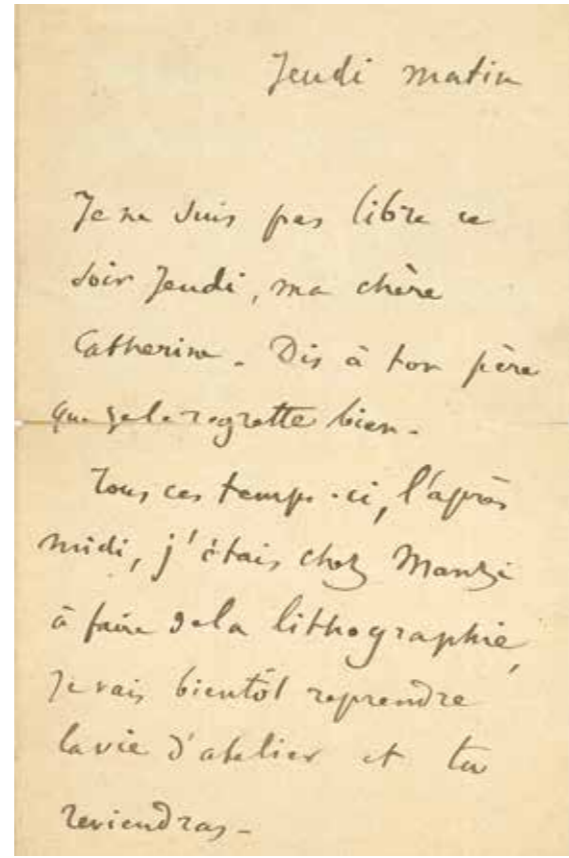 Jeudi matin
Je ne suis pas libre ce
soir Jeudi, ma chère
Catherine. Dis à ton père
que je le regrette bien.
Tous ces temps-ci, l'après
midi, j'étais chez Manzi
à faire de la lithographie,
je vais bientôt reprendre
la vie d'atelier et tu
reviendras -